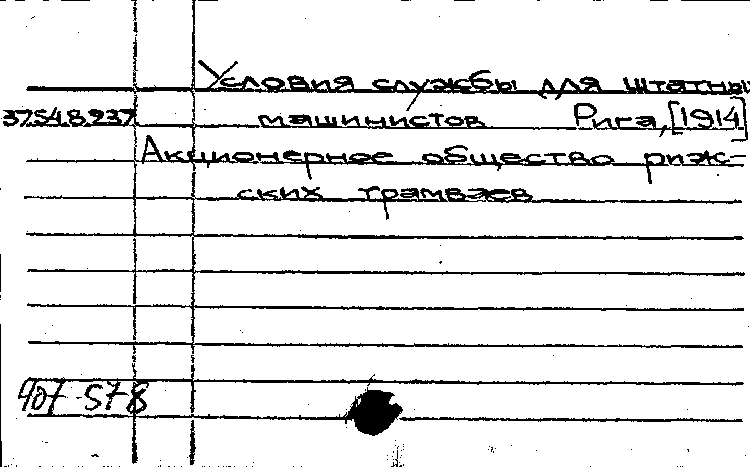 Условия службы для штатны
37548937 машинистов Рига, [1914]
Акционерное общество риж-
ских трамваев
407-578